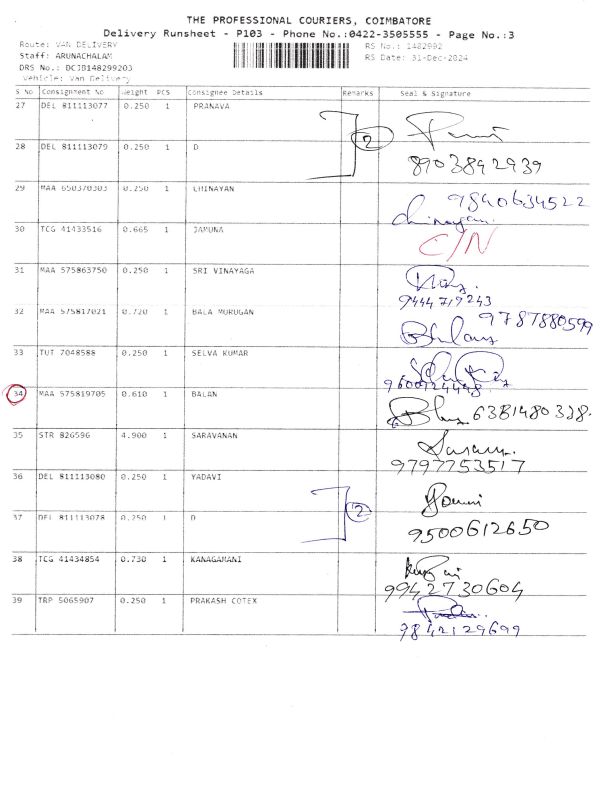 THE PROFESSIONAL COURIERS, COIMBATORE
Delivery Runsheet - P103 - Phone No.:0422-3505555 - Page No.:3
Route: VAN DELIVERY RS No.: 1482992
Staff: ARUNACHALAM RS Date: 31-Dec-2024
DRS No.: DCJB148299203
Vehicle: Van Delivery
S No Consignment No Weight PCS Consignee Details Remarks Seal & Signature
27 DEL 811113077 0.250 1 PRANAVA
2
28 DEL 811113079 0.250 1 D
8903892939
29 MAA 650370303 0.250 1 CHINAYAN 9840634522
Chinayan.
30 TCG 41433516 0.665 1 JAMUNA C/N
31 MAA 575863750 0.250 1 SRI VINAYAGA
9444719243
32 MAA 575817021 0.720 1 BALA MURUGAN 9787880599
33 TUT 7048588 0.250 1 SELVA KUMAR
9600124448
34 MAA 575819705 0.610 1 BALAN 6381480328.
35 STR 826596 4.900 1 SARAVANAN
9797753517
36 DEL 811113080 0.250 1 YADAVI
2
37 DEL 811113078 0.250 1 D
9500612650
38 TCG 41434854 0.730 1 KANAGAMANI
9942730604
39 TRP 5065907 0.250 1 PRAKASH COTEX
9842129699